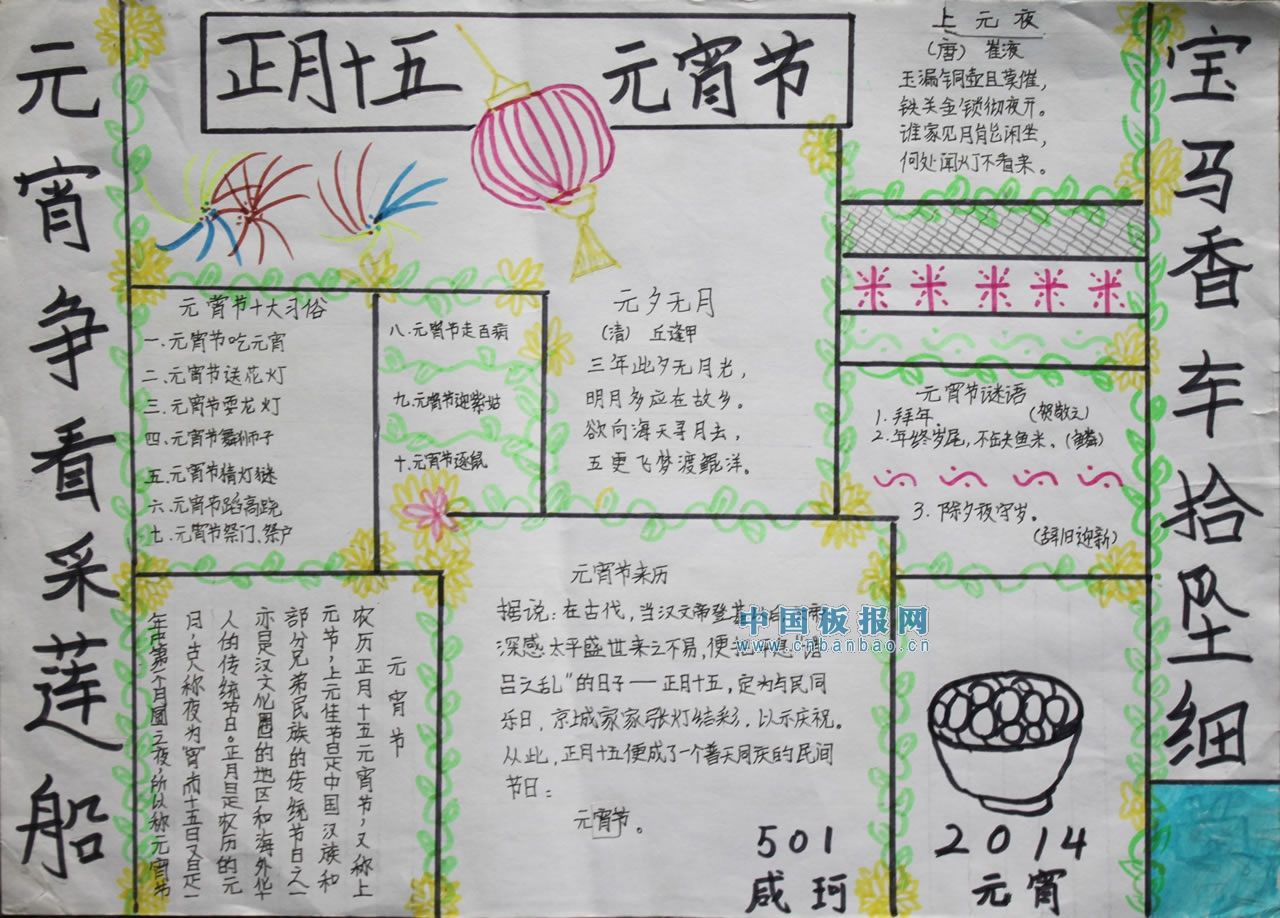 正月十五 元宵节
元宵争看采莲船
宝马香车拾坠细
上元夜
（唐） 崔液
玉漏铜壶且莫催，
铁关金锁彻夜开。
谁家见月能闲坐，
何处闻灯不看来。
元宵节十大习俗
一.元宵节吃元宵
二.元宵节送花灯
三.元宵节耍龙灯
四.元宵节舞狮子
五.元宵节猜灯谜
六.元宵节踩高跷
七.元宵节祭门、祭户
八.元宵节走百病
九.元宵节迎紫姑
十.元宵节逐鼠
元夕无月
（清） 丘逢甲
三年此夕无月光，
明月多应在故乡。
欲向海天寻月去，
五更飞梦渡鲲洋。
元宵节谜语
1.拜年。 （贺敬之）
2.年终岁尾，不缺鱼米。（鳞）
3.除夕夜守岁。
（辞旧迎新）
元宵节
农历正月十五元宵节，又称上
元节，上元佳节是中国汉族和
部分兄弟民族的传统节日之一
亦是汉文化圈的地区和海外华
人的传统节日。正月是农历的元
月，古人称夜为“宵”而十五日又是一
年中第一个月圆之夜，所以称元宵节
元宵节来历
据说：在古代，当汉文帝登基
深感太平盛世来之不易，便把平息“诸
吕之乱”的日子——正月十五，定为与民同
乐日，京城家家张灯结彩，以示庆祝。
从此，正月十五便成了一个普天同庆的民间
节日：
元宵节。
中国板报网
www.cnbanbao.cn
501
咸珂
2014
元宵